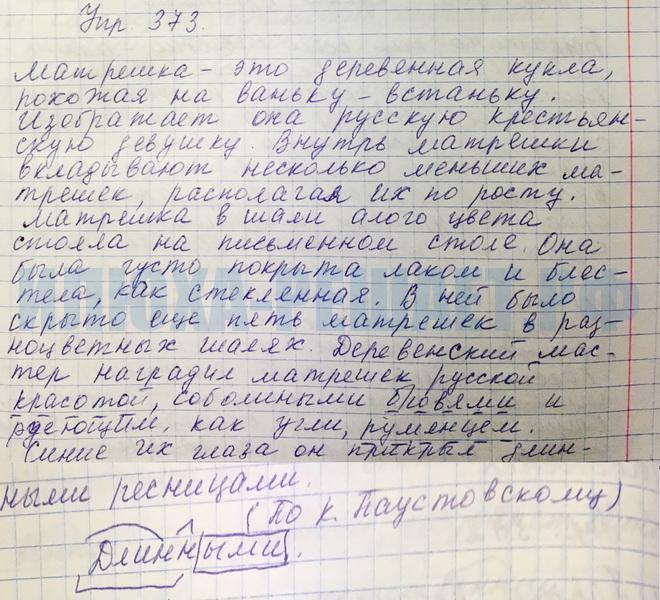 Упр. 373.
Матрешка - это деревянная кукла,
похожая на ваньку - встаньку.
Изобратает она русскую крестьян-
скую девушку. Внутрь матрешки
вкладывают несколько меньших ма-
трешек, располагая их по росту.
Матрешка в шали алого цвета
стояла на письменном столе. Она
была густо покрыта лаком и блес-
тела, как стеклянная. В ней было
скрыто еще пять матрешек в раз-
ноцветных шалях. Деревенский мас-
тер наградил матрешек русской
красотой, соболиными бровями и
рдеющим, как угли, румянцем.
Синие их глаза он прикрыл длин-
ными ресницами.
(По К. Паустовскому)
Длинными.